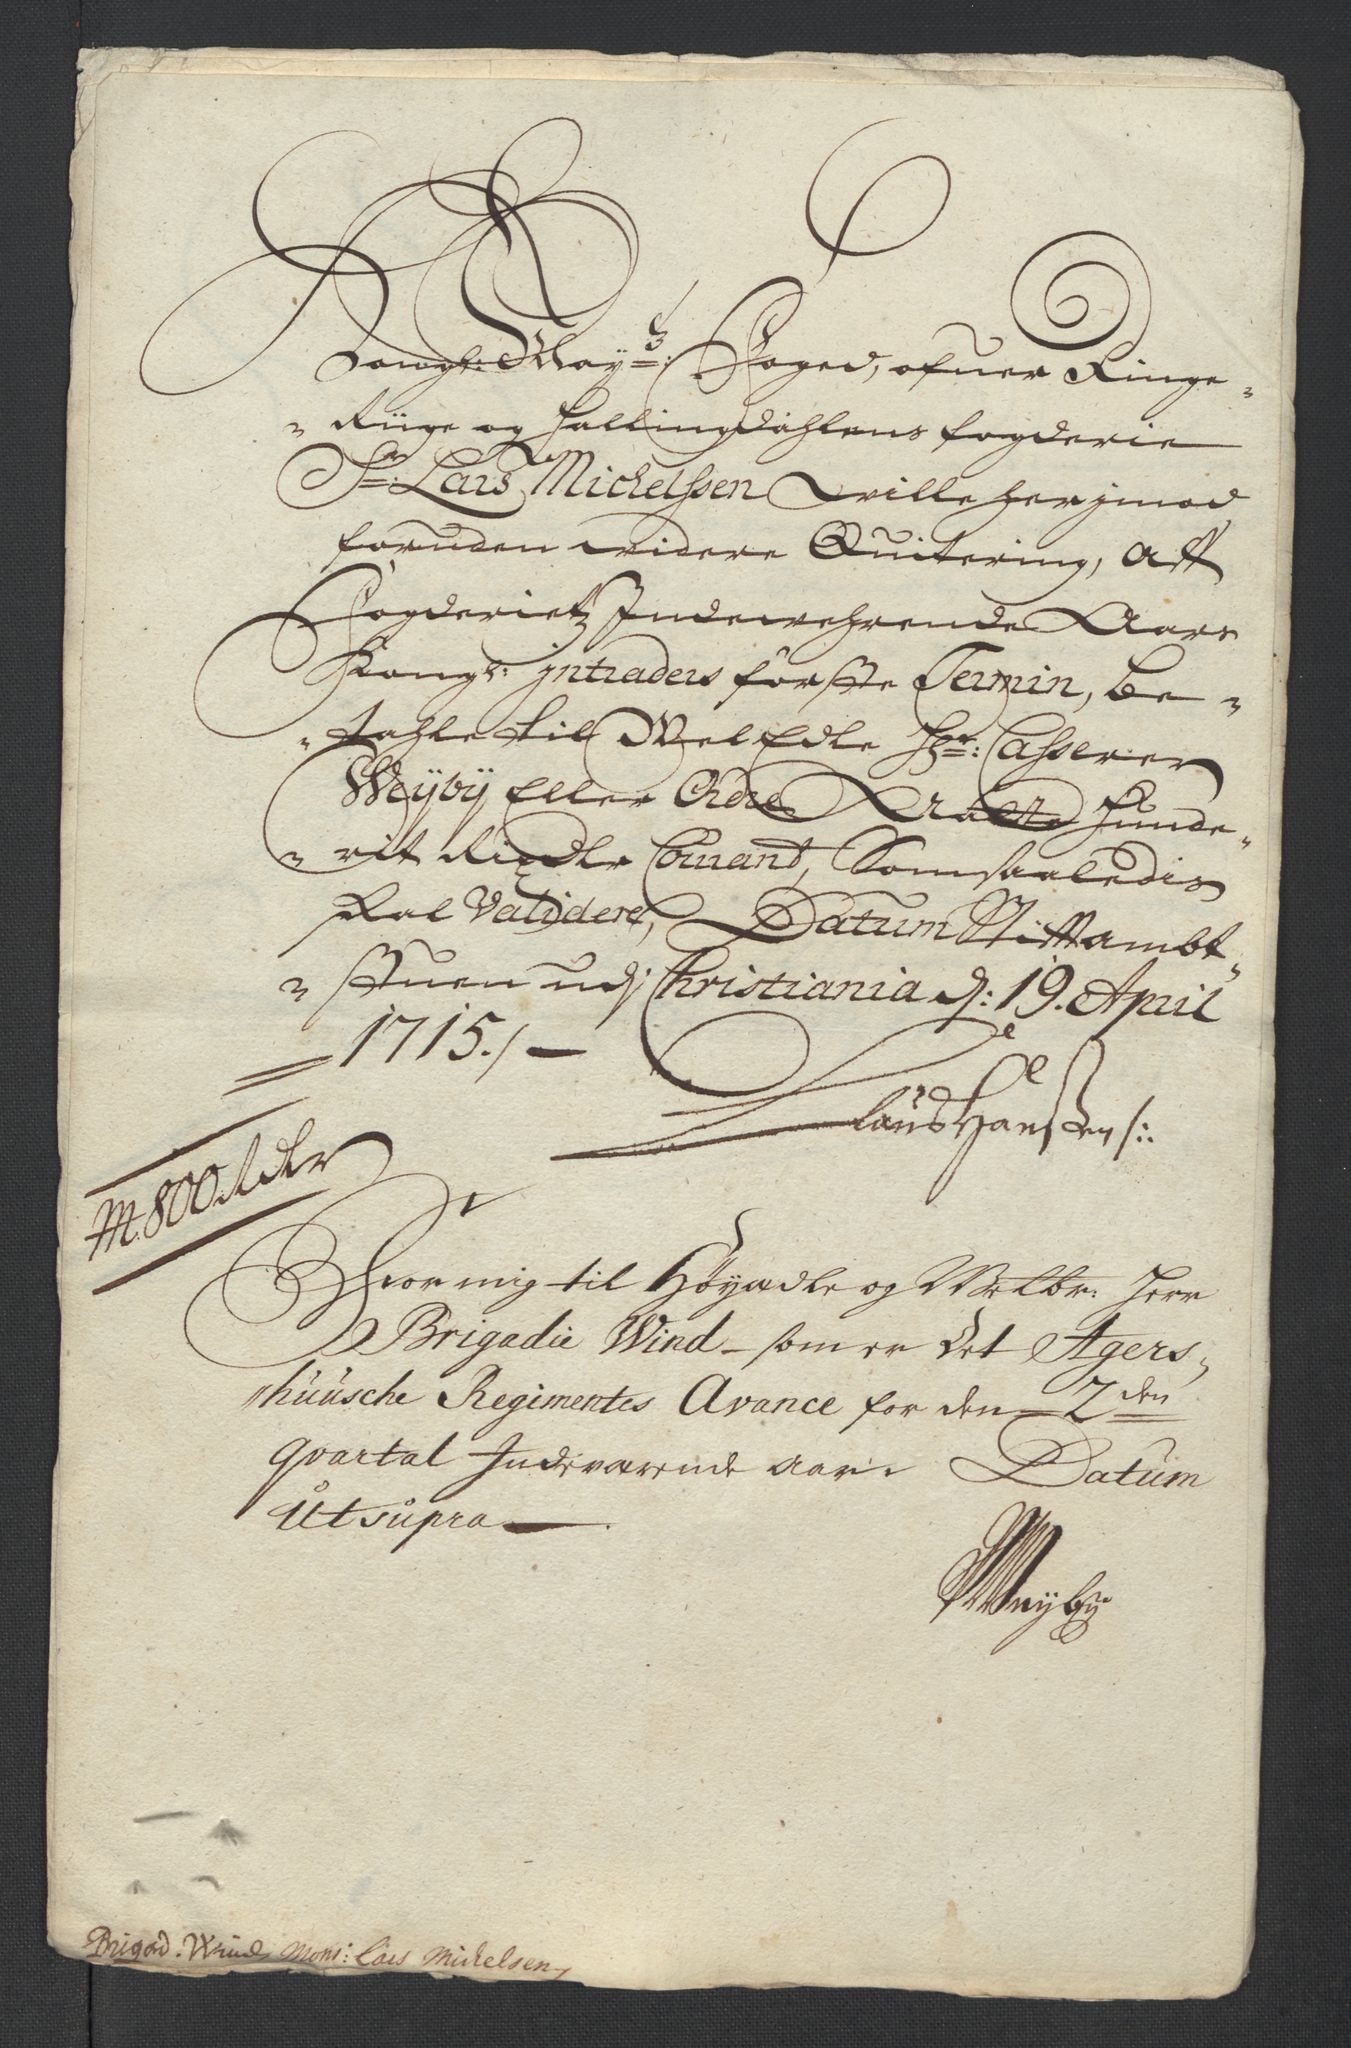 Kongl: Mayts: Foged, ofuer Ringe-
Riige og Hallingdahlens fogderie
Sr: Lars Michelssen ville herjmod
foruden videre Quitering, Aff
Fogderietz Indewehrende Aars
Kongl: jntraders förste Termin, be-
tahle til Wel Edle Hr: Casserer
Weyby Eller Ordre Otte Hunde-
rit Rixdlr Couant, Som saaledis
skal Validere, Datum Stiftambt-
stuen udj Christiania d: 19. April
1715./
Claus Hanssen /:
M. 800 Rdlr
Hvor mig til Höyædle og Velbr: Herr
Brigadie Wind som er det Agers-
huusche Regimentes Avance for den 2den
qvartal Indeværende aar. Datum
Ut supra
Weyby
Brigad. Wind Mons: Lars Michelsen